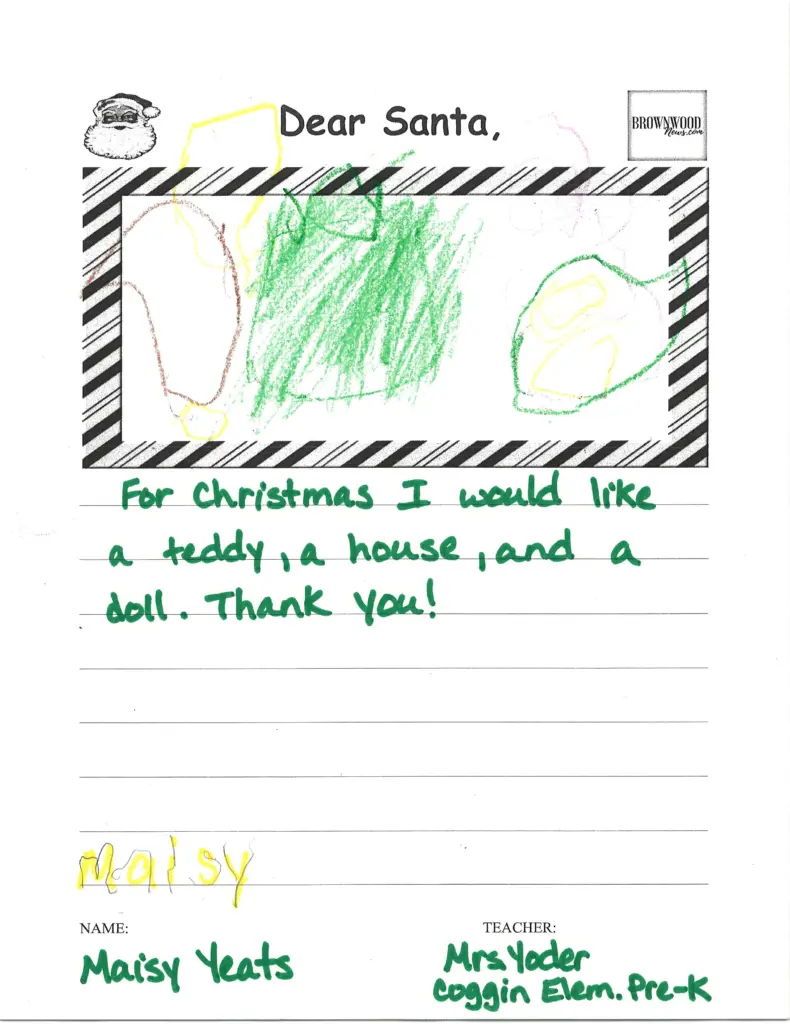 Dear Santa,
BROWNWOOD
News.com
For Christmas I would like
a teddy, a house, and a
doll. Thank you!
Maisy
NAME:
TEACHER:
Maisy Yeats
Mrs. Yoder
Coggin Elem. Pre-K